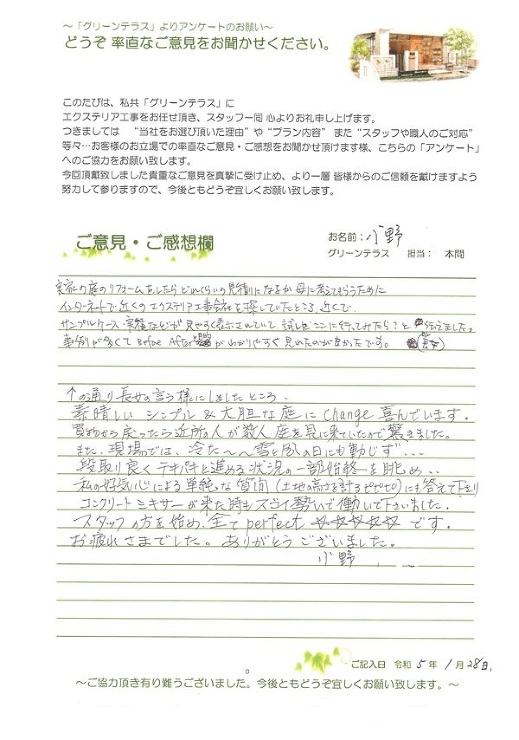 ～「グリーンテラス」よりアンケートのお願い～
どうぞ 率直なご意見をお聞かせください。
このたびは、私共「グリーンテラス」に
エクステリア工事をお任せ頂き、スタッフ一同 心よりお礼申し上げます。
つきましては “当社をお選び頂いた理由” や “プラン内容” また “スタッフや職人のご対応”
等々…お客様のお立場での率直なご意見・ご感想をお聞かせ頂けます様、こちらの「アンケート」
へのご協力をお願い致します。
今回頂戴致しました貴重なご意見を真摯に受け止め、より一層 皆様からのご信頼を戴けますよう
努力して参りますので、今後ともどうぞ宜しくお願い致します。
ご意見・ご感想欄
お名前：小野
グリーンテラス 担当： 本間
実家の庭のリフォームをしたらどれくらいの見積りになるか母に考えてもらうために
インターネットで近くのエクステリア工事会社を探していたところ、近くで
サンプルケース・実績などが見やすく表示されていて試しにここに行ってみたら？と 伝えました。
事例が多くてBefore Afterがわかりやすく見れたのが良かったです。 (長女)
↑の通り長女の言う様にしましたところ
素晴しい シンプル＆大胆な庭にchange 喜んでいます。
買物から戻ったら近所の人が数人庭を見に来ていたので驚きました。
また、現場では、冷た～～い雪と風の日にも動じず…
段取り良くテキパキと進める状況の一部始終を眺め…
私の好奇心による単純な質問（土地の高さを計るピピピ）にも答えて下さり
コンクリートミキサーが来た時もスゴイ勢いで働いて下さいました。
スタッフの方を始め、全てperfect ☆☆☆☆☆ です。
お疲れさまでした。ありがとうございました。
小野
ご記入日 令和 5 年 1 月 28 日
～ご協力頂き有り難うございました。今後ともどうぞ宜しくお願い致します。～